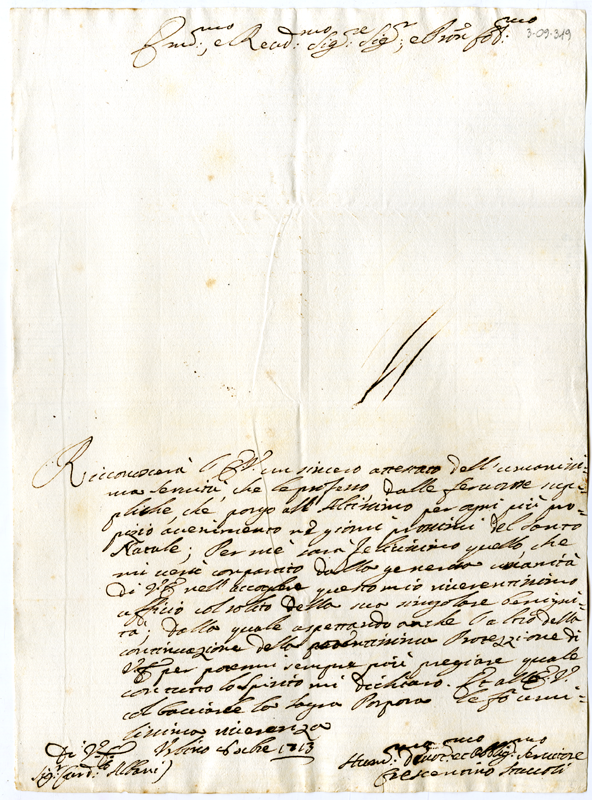 Em.mo, e Reud.mo Sig.re Sig.r, e Pron Col.mo
3-09-319
Riconoscerà l'E.V. un sincero attestato dell'umanissi-
ma servitù, che le professo dalle feruorose sup-
pliche, che porgo all'Altissimo per ogni più pro-
pizio avenimento ne giorni del santo
Natale; Per me sarà felicissimo quello, che
mi verrà compartito dalla generosa umanità
di V.E. nell'accogliere questo mio riverentissimo
ufficio col solito della sua singolare benigni-
tà, dalla quale aspettando anche l'altro della
continuazione della Protezzione di
V.E. per potermi sempre più pregiare quale
con tutto lo spirito mi dichiaro. Et all'E.V.
col bacio della sagra Porpora le fò umi-
lissima riverenza
Urbino 1713
Di V.E.
Sig.r Card.le Albani)
Hum.mo Deuot.mo et Obblig.mo Seruitore
Crescentino Staccoli